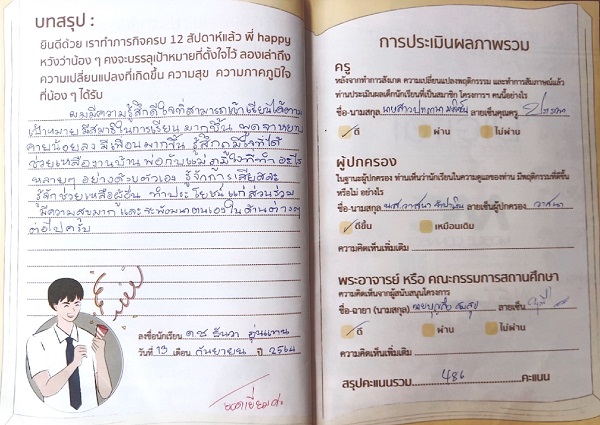 บทสรุป :
ยินดีด้วย เราทำภารกิจครบ 12 สัปดาห์แล้ว พี่ happy
หวังว่าน้อง ๆ คงจะบรรลุเป้าหมายที่ตั้งใจไว้ ลองเล่าถึง
ความเปลี่ยนแปลงที่เกิดขึ้น ความสุข ความภาคภูมิใจ
ที่น้อง ๆ ได้รับ
ผมมีความรู้สึกดีใจที่สามารถเข้าเรียนได้ตาม
เป้าหมาย มีสมาธิในการเรียน มากขึ้น พูดจาหยาบ
คายน้อยลง มีเพื่อนมากขึ้น รู้สึกภูมิใจที่ได้
ช่วยเหลืองานบ้าน พ่อกับแม่ ภูมิใจที่ทำ อะไร
หลายๆ อย่างด้วยตัวเอง รู้จักการเสียสละ
รู้จักช่วยเหลือผู้อื่น ทำประโยชน์แก่ส่วนรวม
มีความสุขมาก และจะพัฒนาตนเองในด้านต่างๆ
ต่อไปครับ
ลงชื่อนักเรียน ด.ช. ธันวา
วันที่ 13 เดือน กันยายน ปี 2564
ยอดเยี่ยมค่ะ
การประเมินผลภาพรวม
ครู
หลังจากทำการสังเกต ความเปลี่ยนแปลงพฤติกรรม และทำการสัมภาษณ์แล้ว
ท่านประเมินผลเด็กนักเรียนที่เป็นสมาชิก โครงการฯ คนนี้อย่างไร
ชื่อ-นามสกุล นางสาว ลายเซ็นคุณครู
ดี ผ่าน ไม่ผ่าน
ผู้ปกครอง
ในฐานะผู้ปกครอง ท่านเห็นว่านักเรียนในความดูแลของท่าน มีพฤติกรรมที่ดีขึ้น
หรือไม่ อย่างไร
ชื่อ-นามสกุล น.ส. วาสนา ลายเซ็นผู้ปกครอง วาสนา
ดีขึ้น เหมือนเดิม
ความคิดเห็นเพิ่มเติม
พระอาจารย์ หรือ คณะกรรมการสถานศึกษา
ความคิดเห็นจากผู้สนับสนุนโครงการ
ชื่อ-ฉายา (นามสกุล) ลายเซ็น
ดี ผ่าน ไม่ผ่าน
ความคิดเห็นเพิ่มเติม
สรุปคะแนนรวม 486 คะแนน